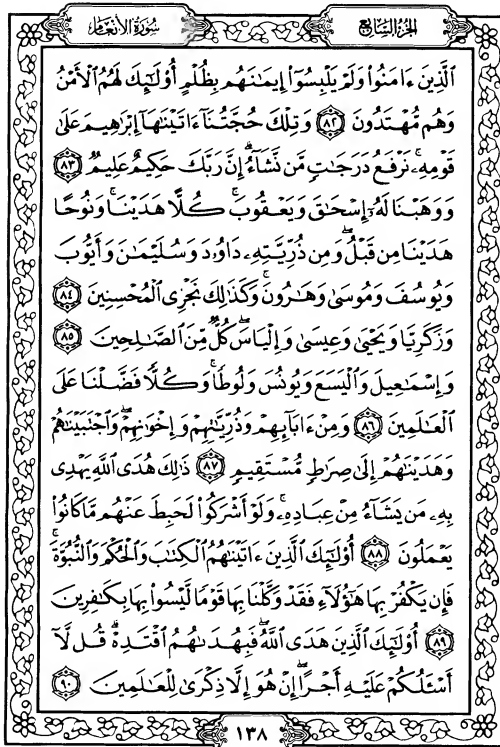 الجزء السابع
سورة الأنعام
الَّذِينَ ءَامَنُوا۟ وَلَمْ يَلْبِسُوٓا۟ إِيمَـٰنَهُم بِظُلْمٍ أُو۟لَـٰٓئِكَ لَهُمُ ٱلْأَمْنُ
وَهُم مُّهْتَدُونَ ٨٢ وَتِلْكَ حُجَّتُنَآ ءَاتَيْنَـٰهَآ إِبْرَٰهِيمَ عَلَىٰ
قَوْمِهِۦ ۚ نَرْفَعُ دَرَجَـٰتٍ مَّن نَّشَآءُ ۗ إِنَّ رَبَّكَ حَكِيمٌ عَلِيمٌ ٨٣
وَوَهَبْنَا لَهُۥٓ إِسْحَـٰقَ وَيَعْقُوبَ ۚ كُلًّا هَدَيْنَا ۚ وَنُوحًا
هَدَيْنَا مِن قَبْلُ ۖ وَمِن ذُرِّيَّتِهِۦ دَاوُۥدَ وَسُلَيْمَـٰنَ وَأَيُّوبَ
وَيُوسُفَ وَمُوسَىٰ وَهَـٰرُونَ ۚ وَكَذَٰلِكَ نَجْزِى ٱلْمُحْسِنِينَ ٨٤
وَزَكَرِيَّا وَيَحْيَىٰ وَعِيسَىٰ وَإِلْيَاسَ ۖ كُلٌّ مِّنَ ٱلصَّـٰلِحِينَ ٨٥
وَإِسْمَـٰعِيلَ وَٱلْيَسَعَ وَيُونُسَ وَلُوطًا ۚ وَكُلًّا فَضَّلْنَا عَلَى
ٱلْعَـٰلَمِينَ ٨٦ وَمِنْ ءَابَآئِهِمْ وَذُرِّيَّـٰتِهِمْ وَإِخْوَٰنِهِمْ ۖ وَٱجْتَبَيْنَـٰهُمْ
وَهَدَيْنَـٰهُمْ إِلَىٰ صِرَٰطٍ مُّسْتَقِيمٍ ٨٧ ذَٰلِكَ هُدَى ٱللَّهِ يَهْدِى
بِهِۦ مَن يَشَآءُ مِنْ عِبَادِهِۦ ۚ وَلَوْ أَشْرَكُوا۟ لَحَبِطَ عَنْهُم مَّا كَانُوا۟
يَعْمَلُونَ ٨٨ أُو۟لَـٰٓئِكَ ٱلَّذِينَ ءَاتَيْنَـٰهُمُ ٱلْكِتَـٰبَ وَٱلْحُكْمَ وَٱلنُّبُوَّةَ ۚ
فَإِن يَكْفُرْ بِهَا هَـٰٓؤُلَآءِ فَقَدْ وَكَّلْنَا بِهَا قَوْمًا لَّيْسُوا۟ بِهَا بِكَـٰفِرِينَ
٨٩ أُو۟لَـٰٓئِكَ ٱلَّذِينَ هَدَى ٱللَّهُ ۖ فَبِهُدَىٰهُمُ ٱقْتَدِهْ ۗ قُل لَّآ
أَسْـَٔلُكُمْ عَلَيْهِ أَجْرًا ۖ إِنْ هُوَ إِلَّا ذِكْرَىٰ لِلْعَـٰلَمِينَ ٩٠
١٣٨